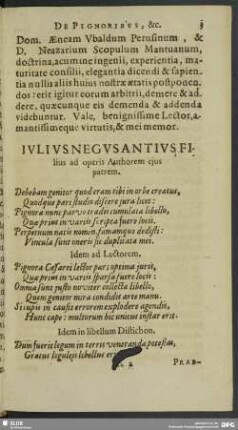 DE PIGNORIBUS, &c. 3
Dom. Æneam Vbaldum Perusinum, &
D. Neazarium Scopulum Mantuanum,
doctrina, acumine ingenii, experientia, ma-
turitate consilii, elegantia dicendi & sapien-
tia nulli alii huius nostræ ætatis postponen-
dos: erit igitur eorum arbitrii, demere & ad-
dere, quæcunque eis demenda & addenda
videbuntur. Vale, benignissime Lector, a-
mantissimeque virtutis, & mei memor.
IVLIVS NEGVSANTIVS FI-
lius ad operis Authorem ejus
patrem.
Debebam genitor quod eram tibi in orbe creatus,
Quodque pars studio disere jura licet:
Pignora nunc parvo tradis cumulata libello,
Qua prius in variis scripta fuere locis.
Perpetuum natis nomen, famamque dedisti:
Vincula sunt oneris sic duplicata mei.
Idem ad Lectorem.
Pignora Cæsarei lector pars optima juris,
Qua prius in variis sparsa fuere locis:
Omnia sunt justo noviter collecta libello,
Quem genitor mira condidit arte manu.
Si cupis in causis errorem explodere agendis,
Hunc cape: multorum hic unicus instar erit.
Idem in libellum Distichon.
Dum fuerit legum in terris veneranda potestas,
Gratus legulejis libellus
PRAE-